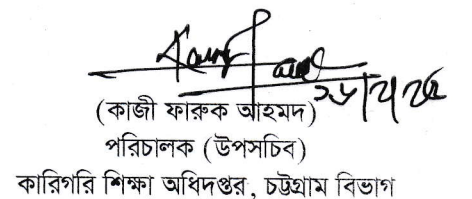 (কাজী ফারুক আহমদ)
পরিচালক (উপসচিব)
কারিগরি শিক্ষা অধিদপ্তর, চট্টগ্রাম বিভাগ